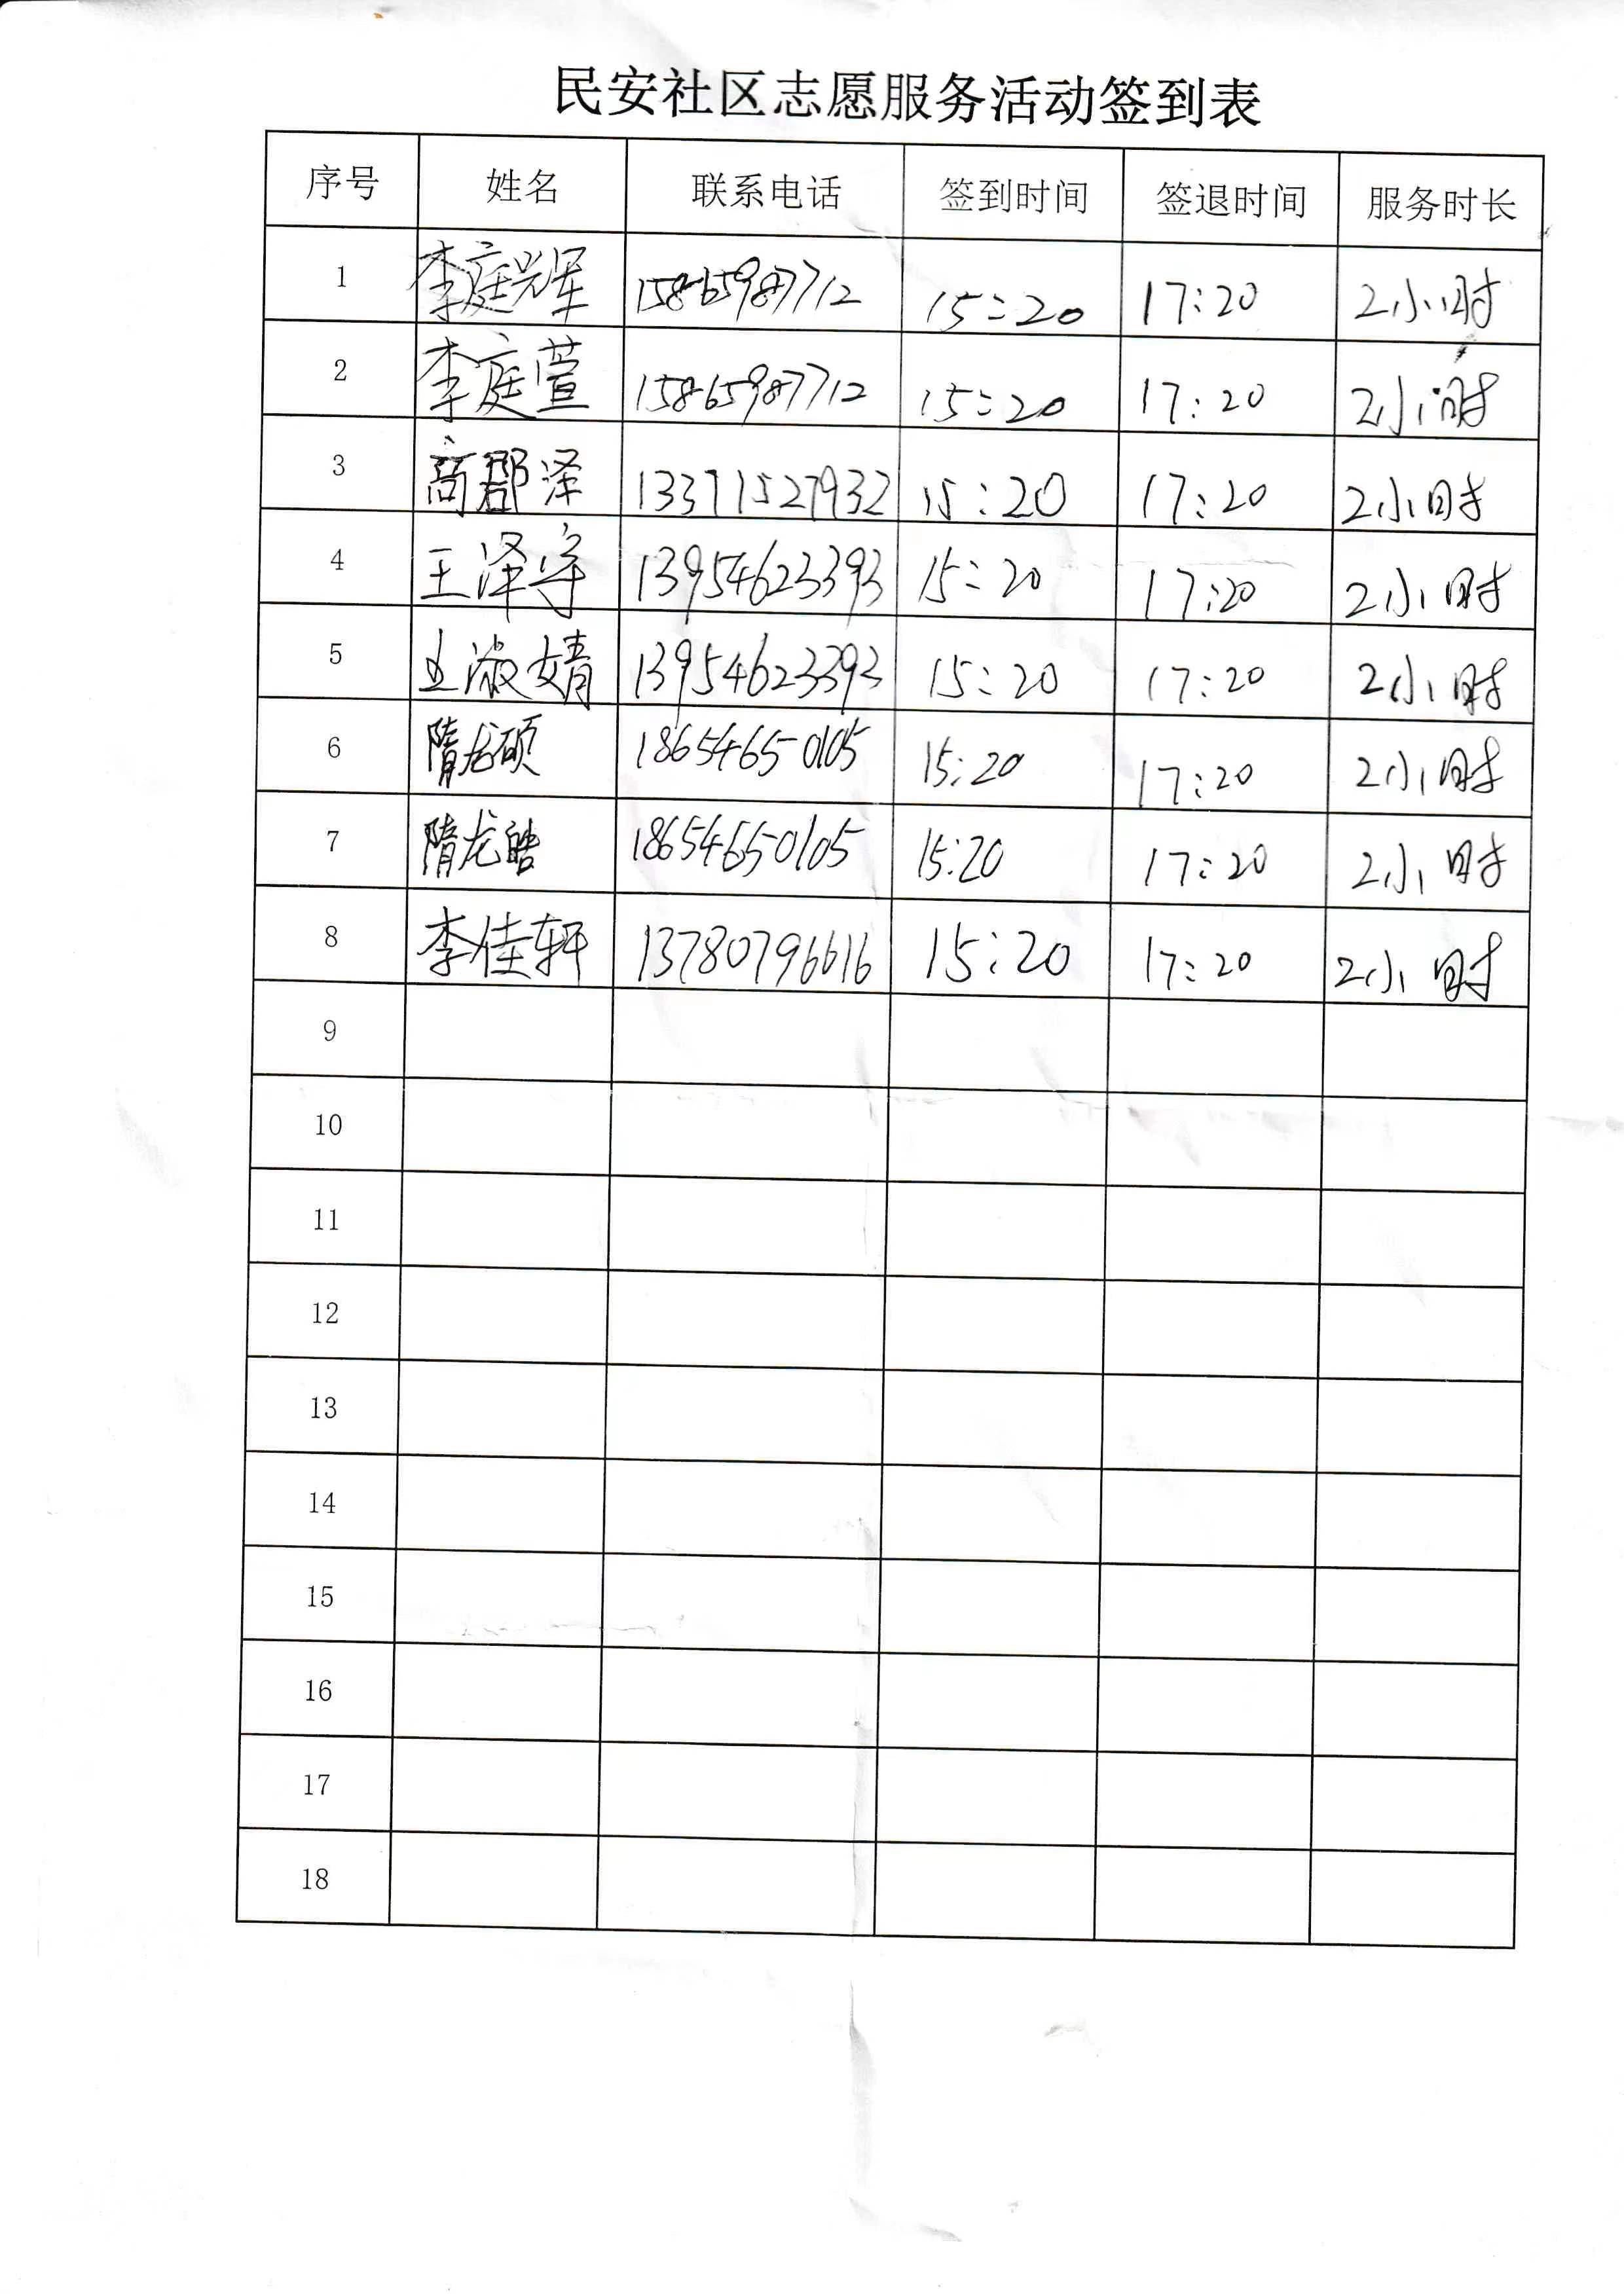 民安社区志愿服务活动签到表
序号 姓名 联系电话 签到时间 签退时间 服务时长
1 李庭辉 15865987712 15:20 17:20 2小时
2 李庭萱 15865987712 15:20 17:20 2小时
3 商郡泽 13371527932 15:20 17:20 2小时
4 王泽宇 13954623393 15:20 17:20 2小时
5 王淑婧 13954623393 15:20 17:20 2小时
6 隋龙硕 18654650105 15:20 17:20 2小时
7 隋龙皓 18654650105 15:20 17:20 2小时
8 李佳轩 13780796616 15:20 17:20 2小时
9
10
11
12
13
14
15
16
17
18